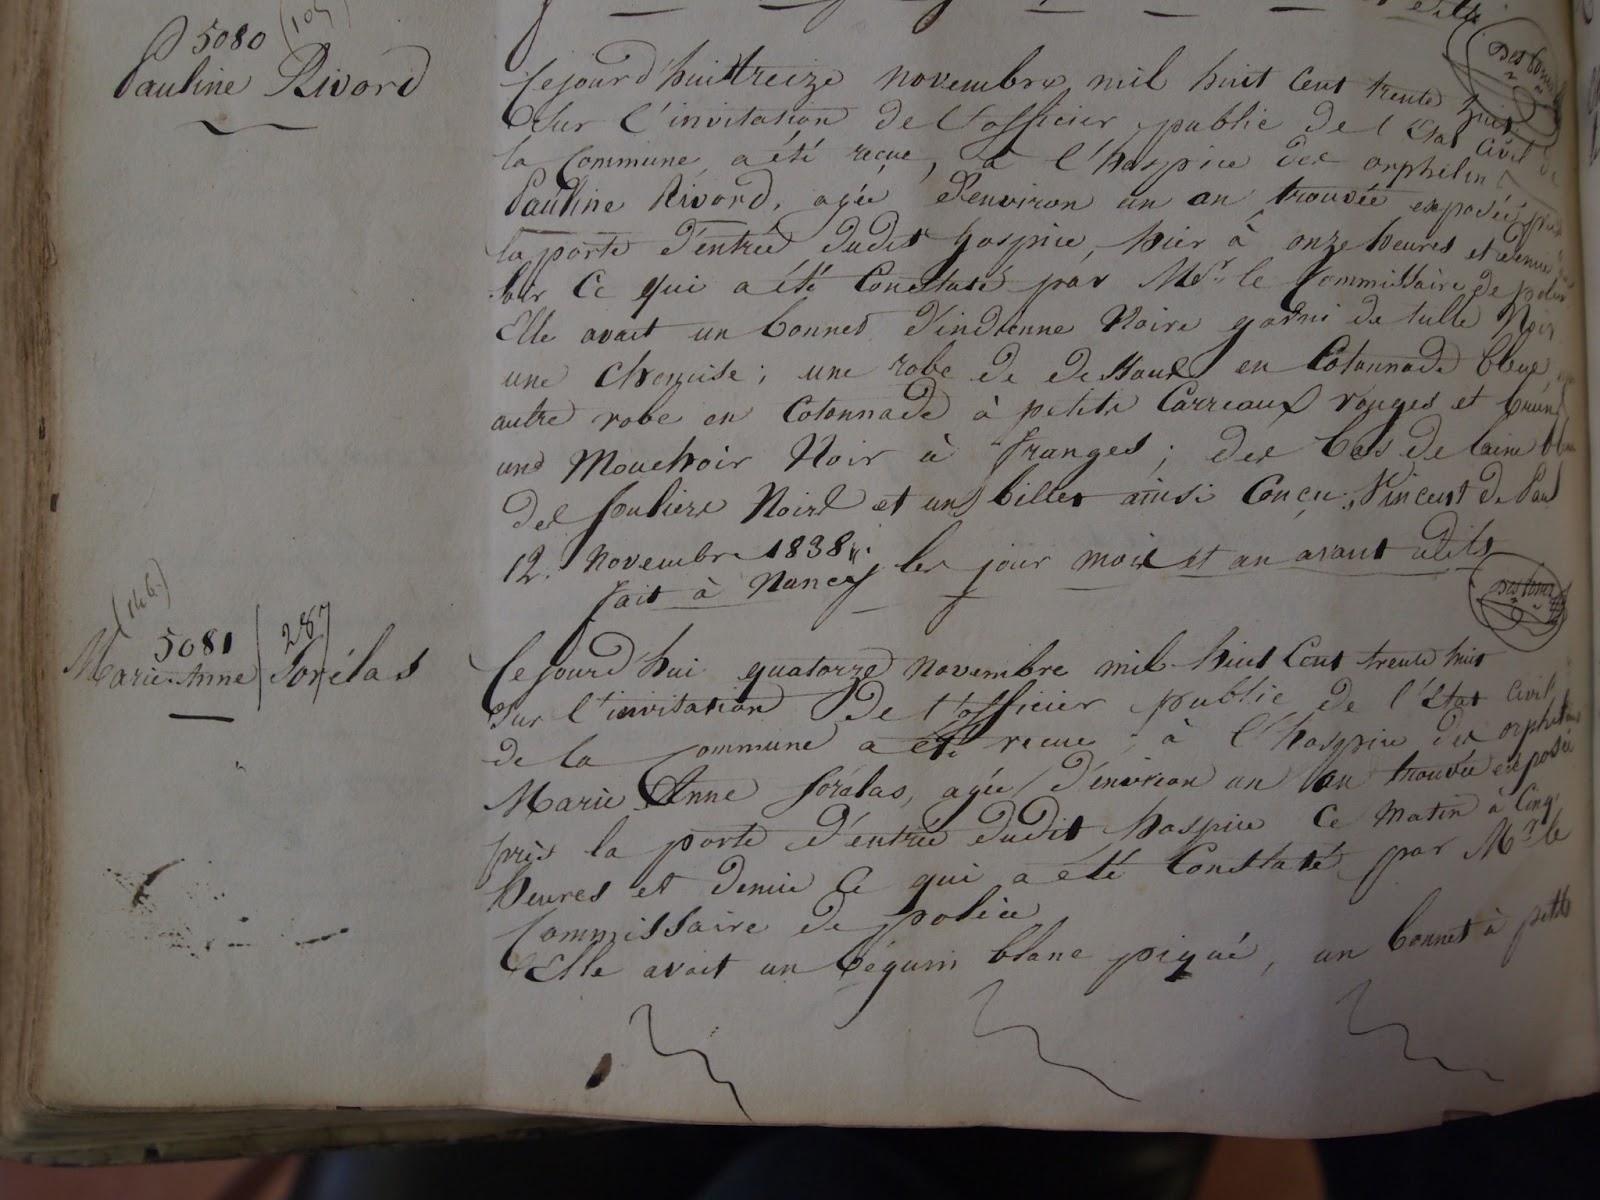 5080
Pauline Rivord
Cejourd'hui treize novembre mil huit cent trente huit
Sur l'invitation de l'officier public de l'Etat Civil de
la Commune, a été reçue, à l'hospice des orphelins
Pauline Rivord, agée d'environ un an trouvée exposée près
la porte d'entrée dudit hospice, hier à onze heures et demie
soir ce qui a été Constaté par Mr. le Commissaire de police
Elle avait un bonnet d'indienne Noire garni de tulle Noir
une chemise; une robe de dessous en Cotonnade bleue,
autre robe en Cotonnade à petits Carreaux rouges et bruns
une Mouchoir Noir à franges; des bas de laine
des souliers Noirs et un billet ainsi Conçu: Vincent de Paul
12. Novembre 1838.
fait à Nancy les jour mois et an avant dits
(146)
5081
287
Marie Anne Sorélas
Cejourd'hui quatorze novembre mil huit Cent trente huit
Sur l'invitation de l'officier public de l'Etat Civil,
de la Commune a été reçue, à l'hospice des orphelins
Marie Anne Sorélas, agée d'environ un an trouvée exposée
près la porte d'entrée dudit hospice Ce Matin à Cinq
heures et demie Ce qui a été Constaté par Mr. le
Commissaire de police
Elle avait un béguin blanc piqué, un bonnet à petits